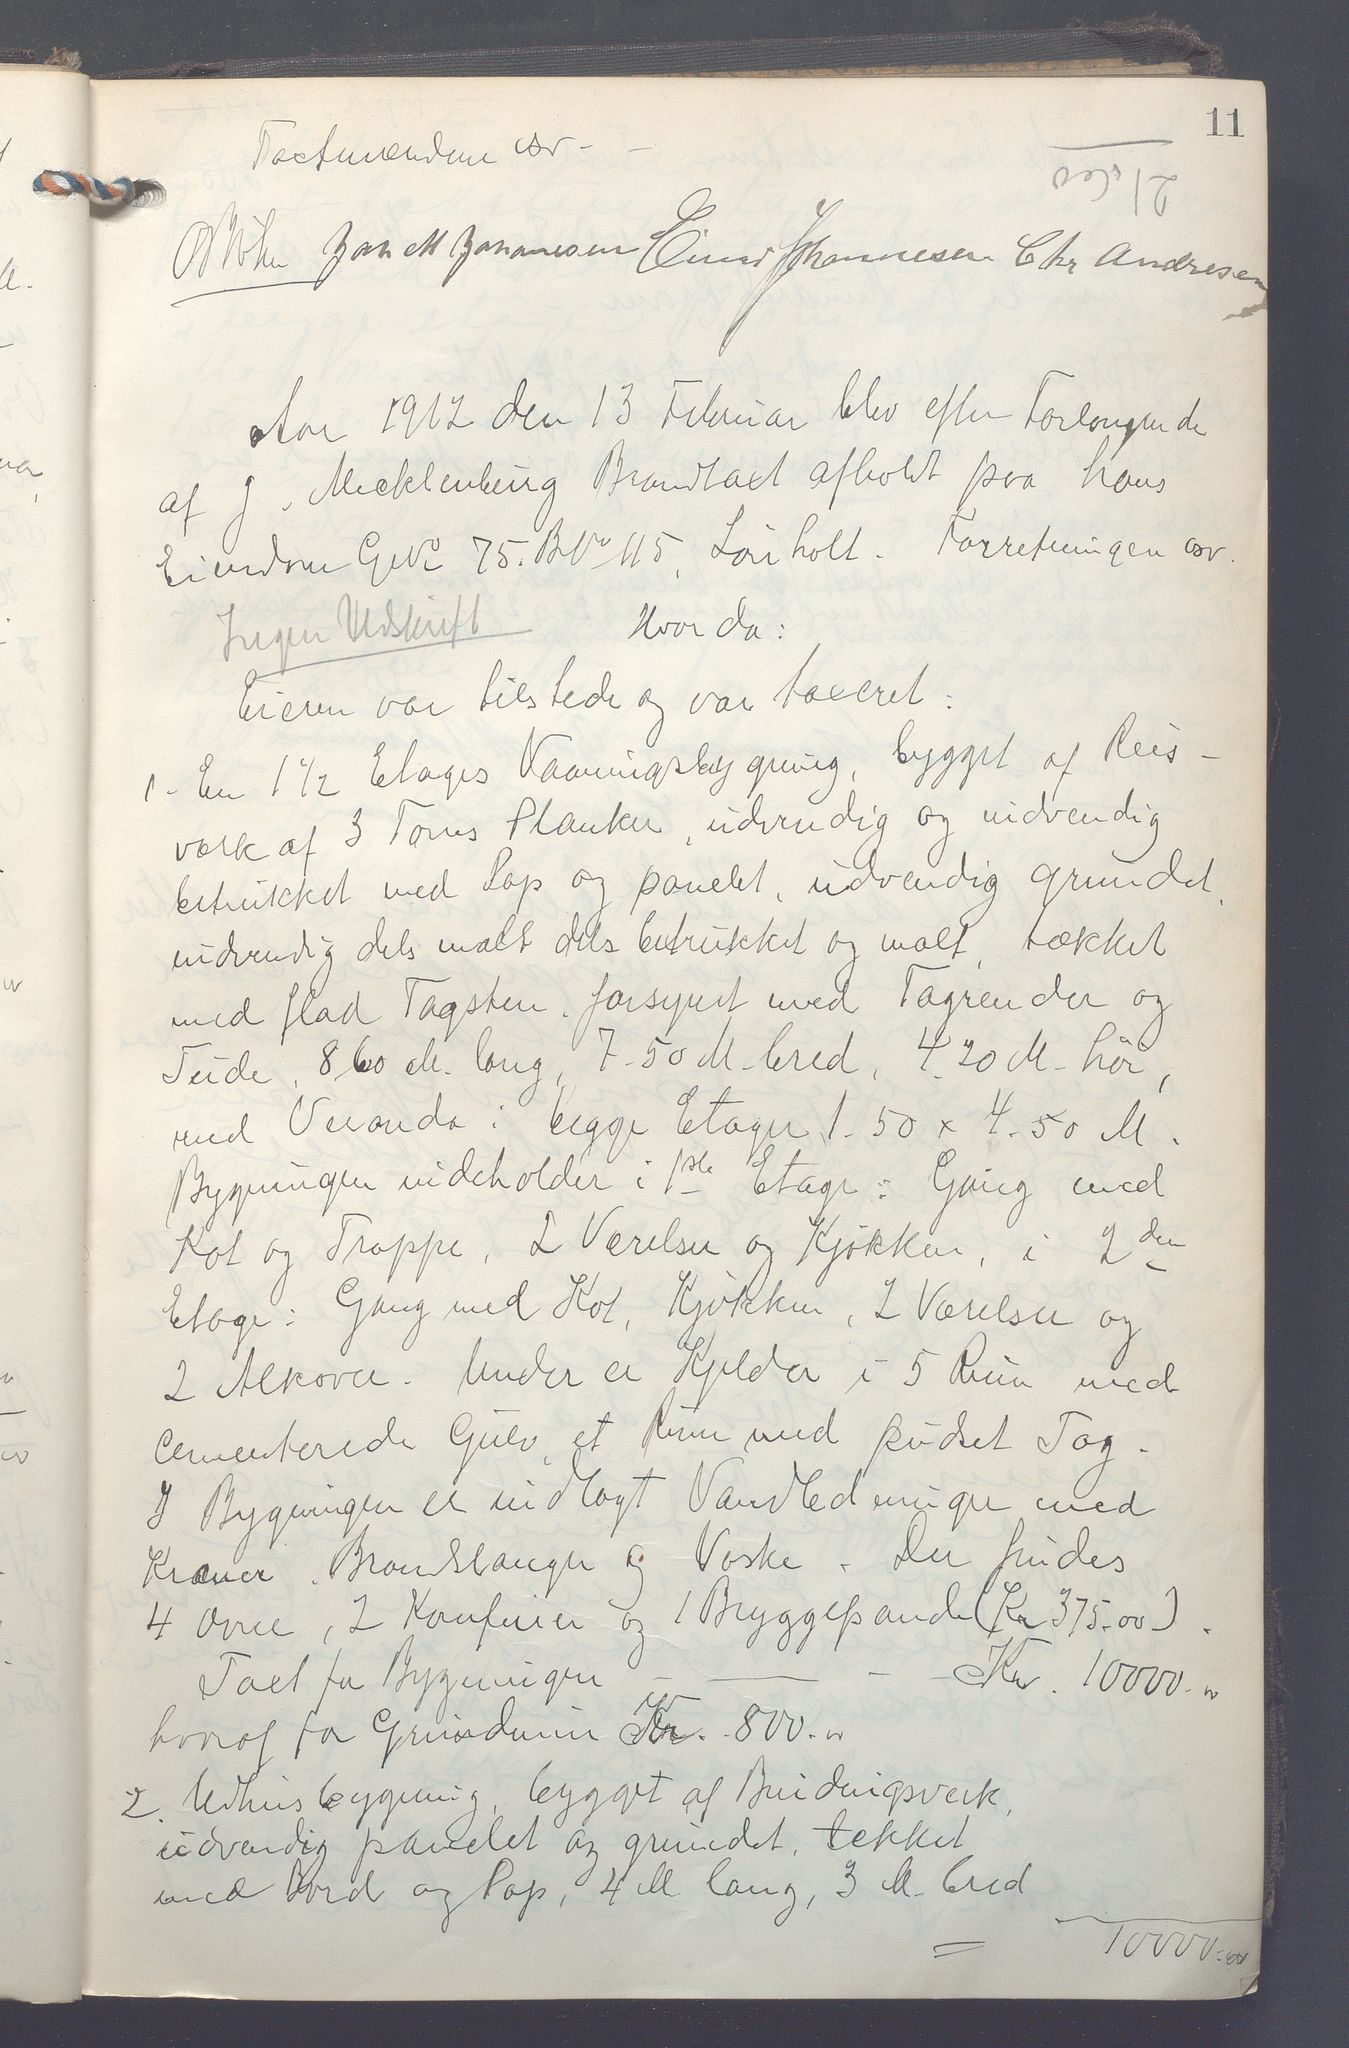 11
Taxtmændene osv - -
Jan M Johannesen Einar Johannesen Chr Andresen
Aar 1912 den 13 Februar blev efter Forlangende
af J. Mecklenburg Brandtaxt afholdt paa hans
Eiendom GNo 75. BNo 115, Lønholt. Forretningen osv.
Ingen Udskrift Hvorda:
Eieren var tilstede og var taxeret:
1. En 1 1/2 Etages Vaaningsbygning, bygget af Reis-
værk af 3 Toms Planker, udvendig og indvendig
betrukket med Pap og panelet, udvendig grundet,
indvendig dels malt dels betrukket og malt, tækket
med flad Tagsten, forsynet med Tagrender og
Tude, 8.60 M. lang, 7.50 M. bred, 4.20 M. høi,
med Veranda i begge Etager 1.50 x 4.50 M.
Bygningen indeholder i 1ste Etage: Gang med
Kot og Trappe, 2 Værelser og Kjøkken, i 2den
Etage: Gang med Kot, Kjøkken, 2 Værelser og
2 Alkover. Under er Kjelder i 5 Rum med
cementerede Gulv, et Rum med pudset Tag.
I Bygningen er indlagt Vandledninger med
Kraner, Brandslanger og Vaske. Der findes
4 Ovne, 2 Komfurer og 1 Bryggepande (Kr 375.00).
Taxt for Bygningen - — - - Kr. 10000.00
hvoraf for Grundmur Kr. 800.00
2. Udhusbygning, bygget af Bindingsverk,
udvendig panelet og grundet, tekket
med Bord og Pap, 4 M lang, 3 M. bred
= 10000.00